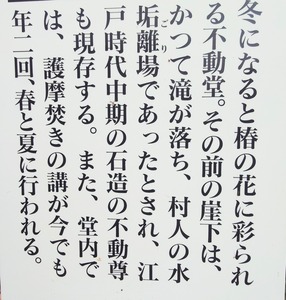 冬になると椿の花に彩られ
る不動堂。その前の崖下は、
かつて滝が落ち、村人の水
垢離場であったとされ、江
ごり
戸時代中期の石造の不動尊
も現存する。また、堂内で
は、護摩焚きの講が今でも
年二回、春と夏に行われる。